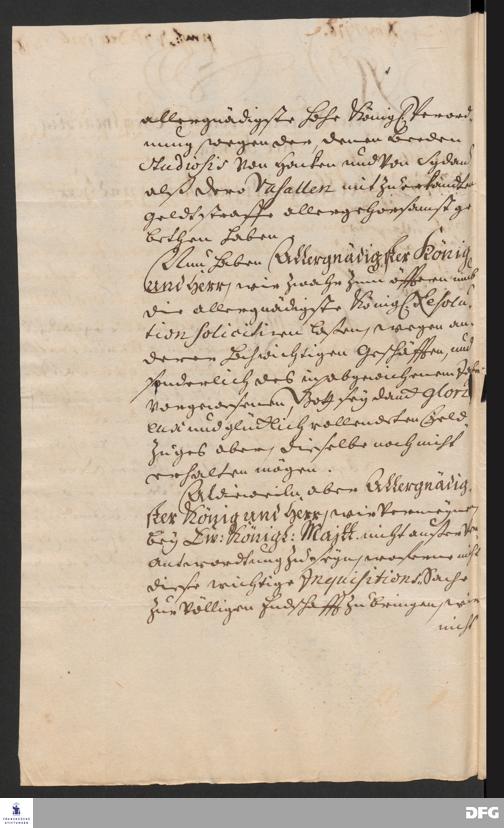 allergnädigste hohe Königl. Verord-
nung, wegen der, denen beeden
Studiosis von Hacken und von Sydau
alß dero Vasallen mit zuerkandten
Geldstraffe allergehorsamst ge-
bethen haben
Nun haben Allergnädigster König
und Herr, wir zwahr zum öfftern umb
die allergnädigste Königl. Resolu-
tion solicitiren lassen, wegen an-
derer hochwichtigen Geschäfften, und
sonderlich des in abgewichenem Jahr
vorgewesenen, Gott sey danck glori-
eux und glücklich vollendeten Feld
Zuges aber, dieselbe noch nicht
erhalten mögen.
Aldieweiln aber Allergnädig-
ster König und Herr, wir vermeynen
bey Ew: Königl: Maytt. nicht außer Ver-
antwordtung zu seyn, woferne nicht
diese wichtige Inquisitions-Sache
zur völligen Endschafft zu bringen, wir
nicht
FRANCKESCHE
STIFTUNGEN
DFG